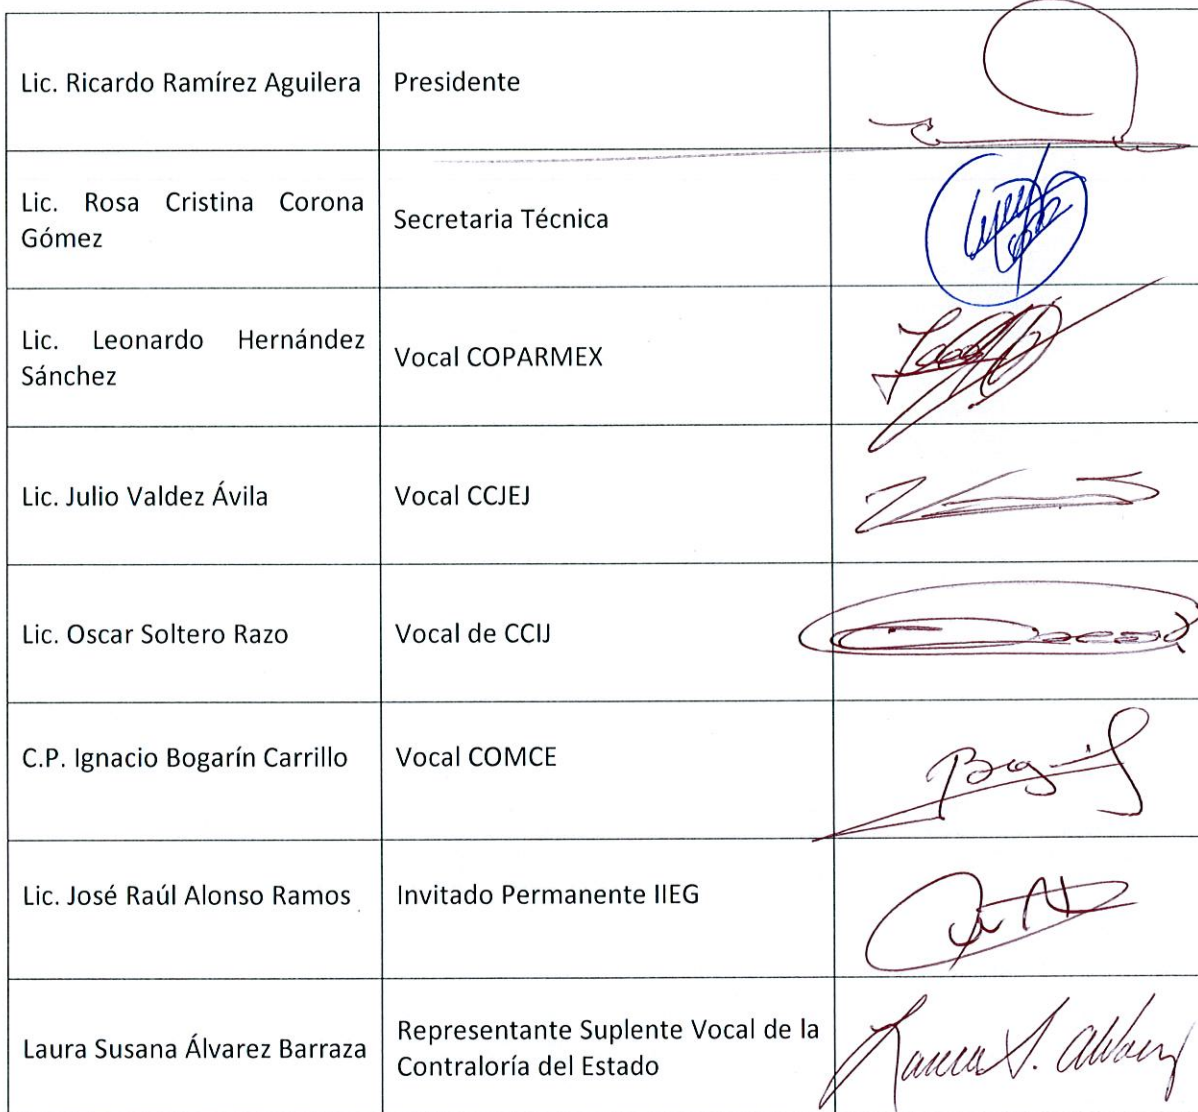 Lic. Ricardo Ramírez Aguilera
Presidente
Lic. Rosa Cristina Corona
Gómez
Secretaria Técnica
Lic. Leonardo Hernández
Sánchez
Vocal COPARMEX
Lic. Julio Valdez Ávila
Vocal CCJEJ
Lic. Oscar Soltero Razo
Vocal de CCIJ
C.P. Ignacio Bogarín Carrillo
Vocal COMCE
Lic. José Raúl Alonso Ramos
Invitado Permanente IIEG
Laura Susana Álvarez Barraza
Representante Suplente Vocal de la
Contraloría del Estado